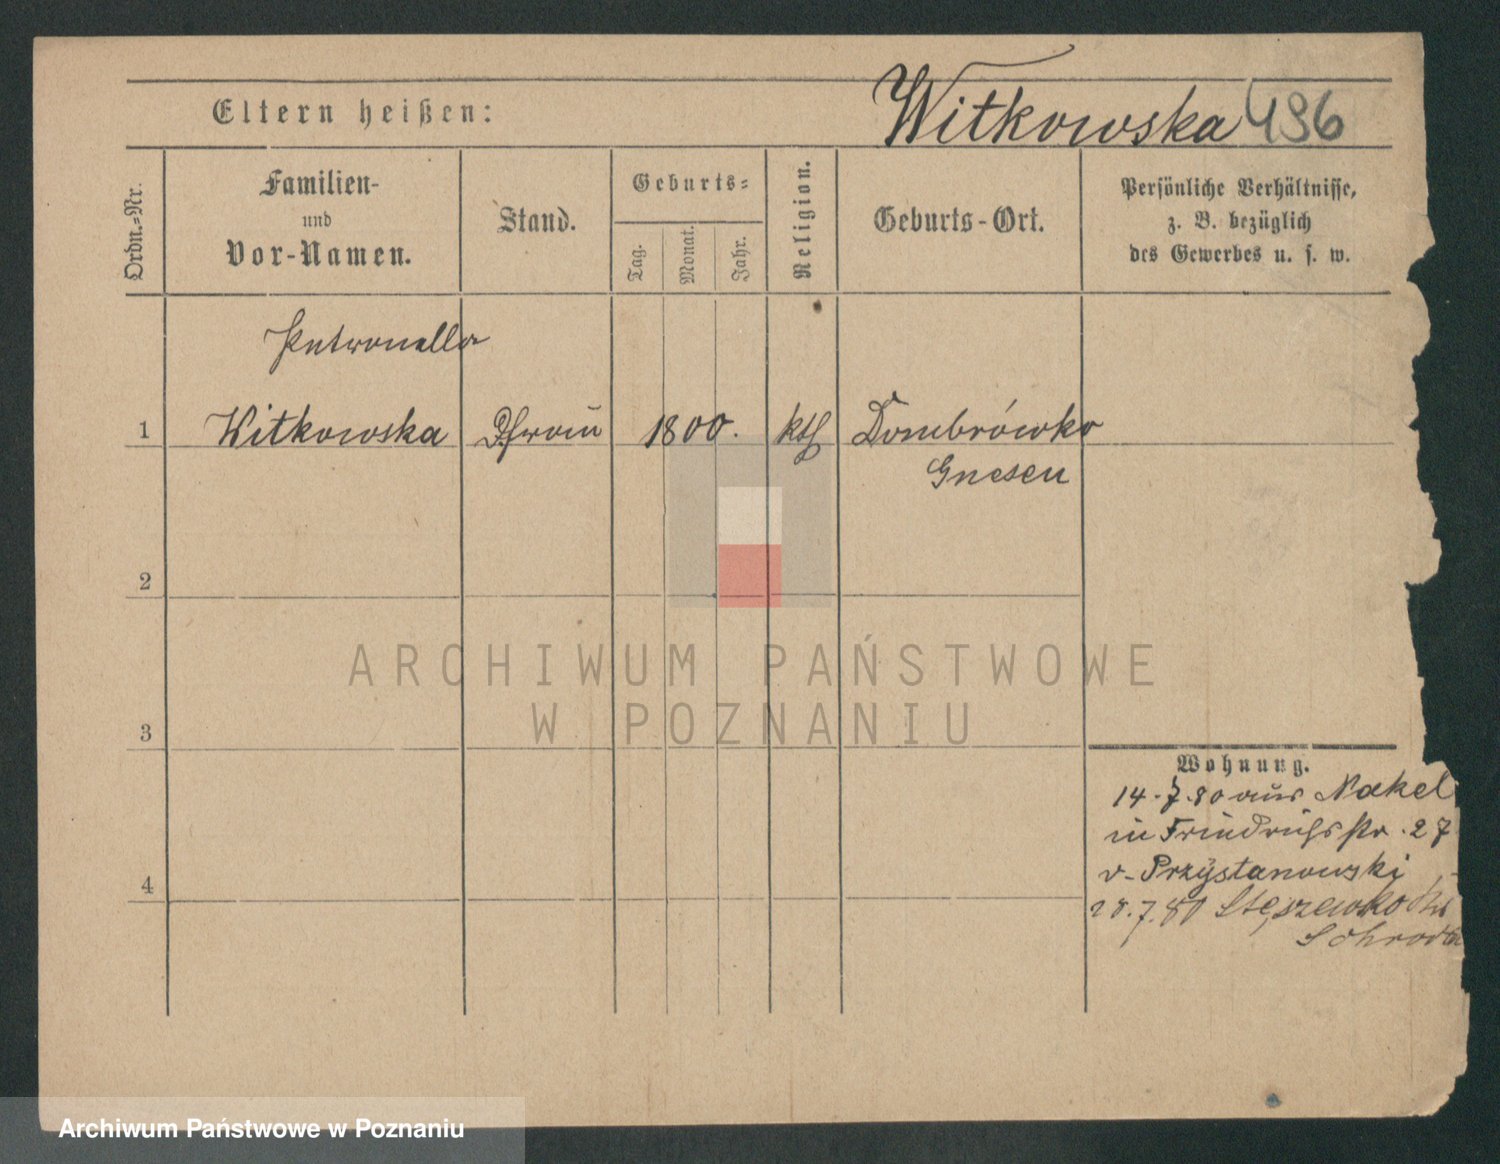 Eltern heißen:
Witkowska 496
Ordn.-Nr.
Familien-
und
Vor-Namen.
Stand.
Geburts-
Tag.
Monat.
Jahr.
Religion.
Geburts-Ort.
Persönliche Verhältnisse,
z. B. bezüglich
des Gewerbes u. s. w.
Petronella
1 Witkowska 1800. kth Dombrówko
Gnesen
2
3
4
Wohnung.
14.7.80 aus Nakel
in Friedrichsstr. 27
v. Przystanowski
28.7.80 Stęszewko
Schroda
ARCHIWUM PAŃSTWOWE
W POZNANIU
Archiwum Państwowe w Poznaniu